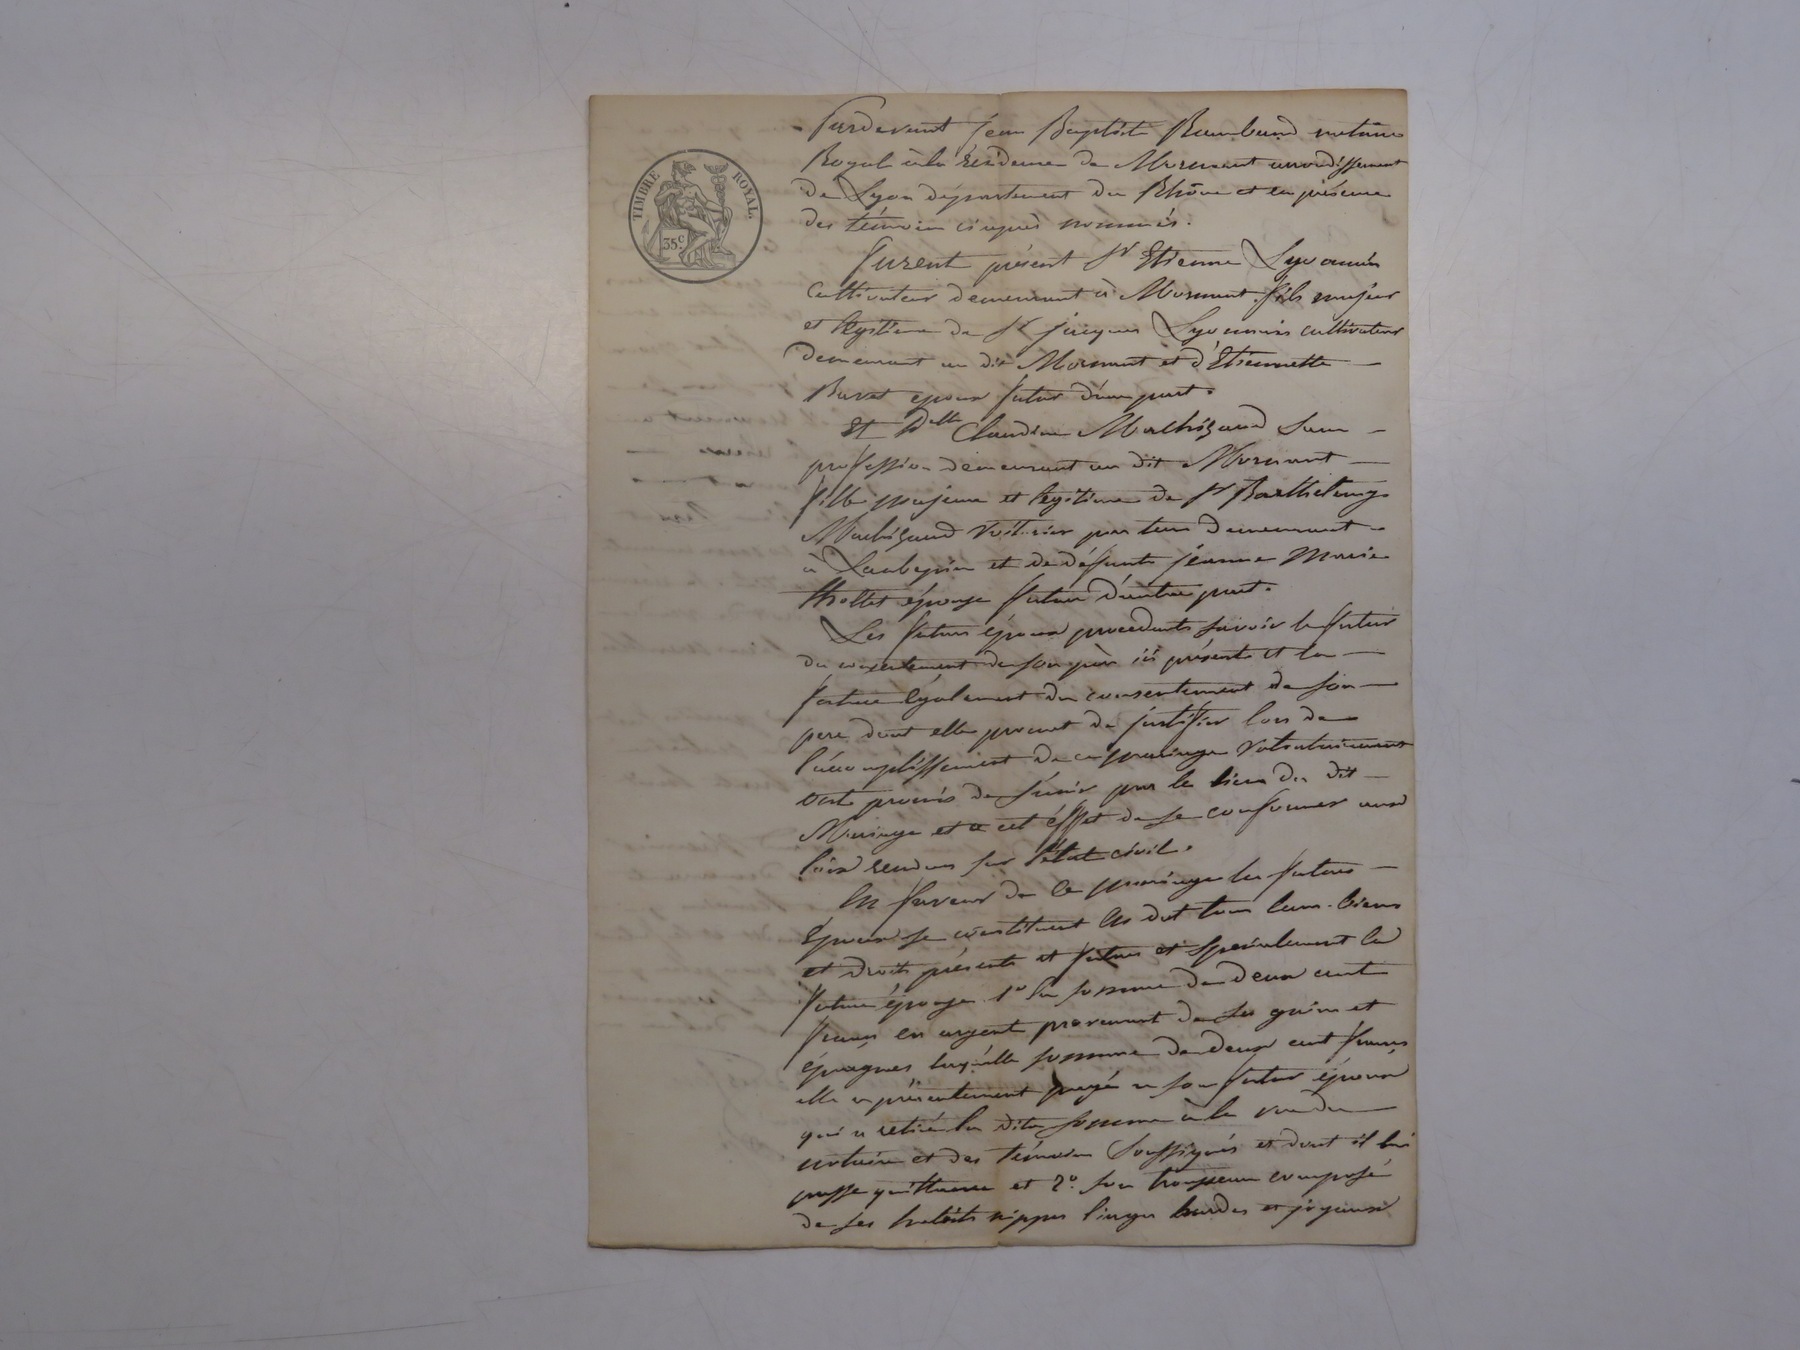 TIMBRE ROYAL.
35 c.
Pardevant Jean Baptiste notaire
Royal à la résidence de Mornant arrondissement
de Lyon département du Rhône et en présence
des témoins ci après nommés.
Furent présent Sr Etienne Lyonnais
Cultivateur demeurant à Mornant fils majeur
et légitime de Sr jacques Lyonnais cultivateur
demeurant au dit Mornant et d'Etiennette
époux futur d'une part.
Et Delle Claudine sans
profession demeurant au dit Mornant
fille majeure et légitime de Sr Barthelemy
voiturier par terre demeurant
à Laubépin et de défunte jeanne Marie
épouse future d'autre part.
Les futurs époux procédants savoir le futur
du consentement de son père ici présent et la
future également du consentement de son
père dont elle promet de justifier lors de
l'accomplissement de ce mariage volontairement
ont promis de s'unir par le lien du dit
Mariage et a cet éffet de se conformer aux
lois rendues sur l'état civil.
En faveur de ce mariage les futurs
Epoux se constituent en dot tous leurs biens
et droits présents et futurs et spécialement la
future épouse 1o la somme de deux cent
francs en argent provenant de ses gains et
épargnes laquelle somme de deux cent francs
elle a présentement payé a son futur époux
qui a retiré la dite somme à la vue du
notaire et des témoins soussignés et dont il lui
passe quittance et 2o. son trousseau composé
de ses habits nippes linges hardes et joyaux